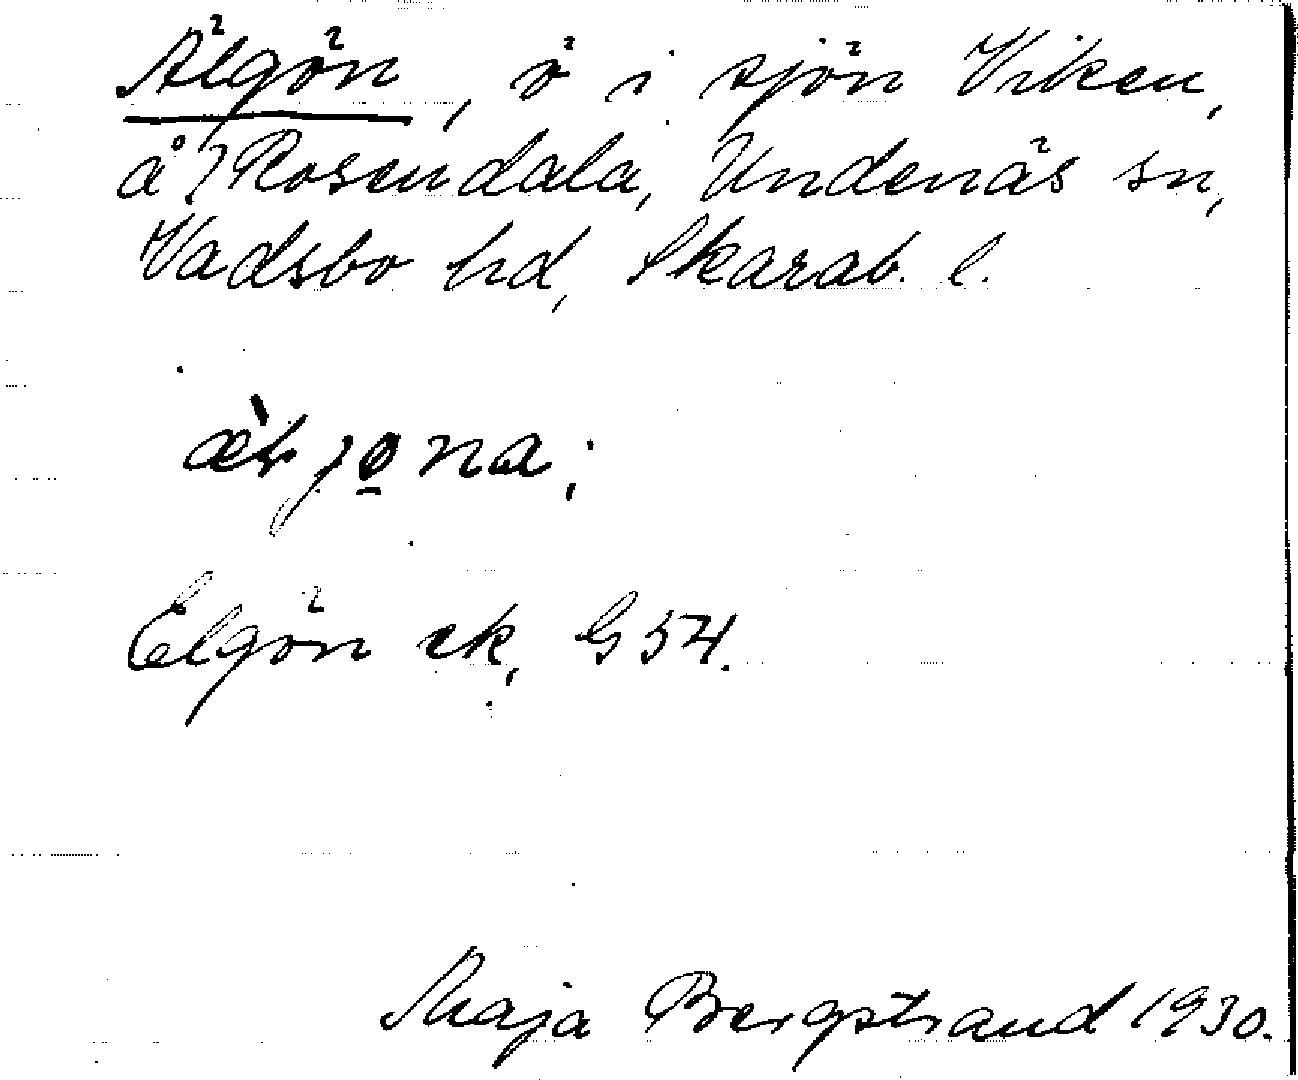 Älgön, ö i sjön Viken,
å Rosendala, Undenäs sn,
Vadsbo hd, Skarab. l.
Elgön ek, G 54.
Maja Bergstrand 1930.